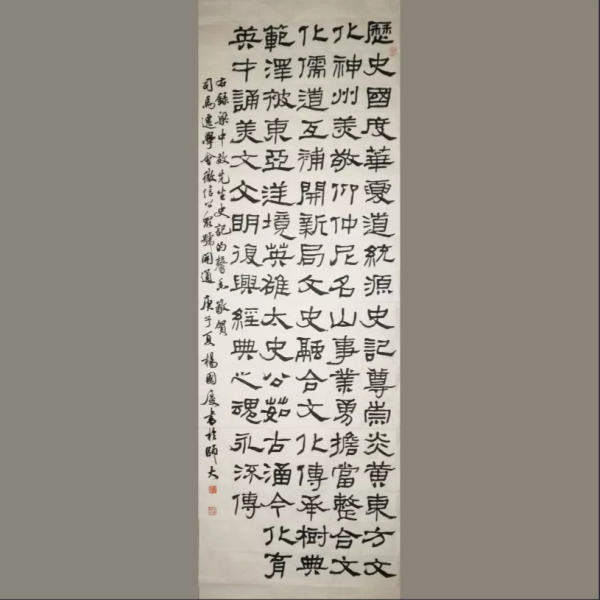 歷史國度華夏道統源史記尊崇炎黄東方文
化神州美敬仰仲尼名山事業勇擔當整合文
化儒道互補開新局文史融合文化傳承樹典
範澤被東亞洋境英雄太史公茹古涵今化育
英才誦美文文明復興經典之魂永流傳
右錄梁中效先生史記的敬賀
司馬遷學會微信公眾號開通庚子夏楊國慶書於師大